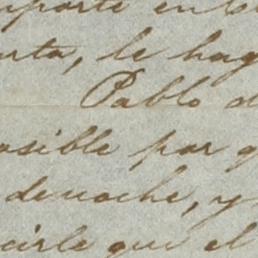 mporte en
rta, le hag
Pablo d
osible por q
denoche, y
cirle que el